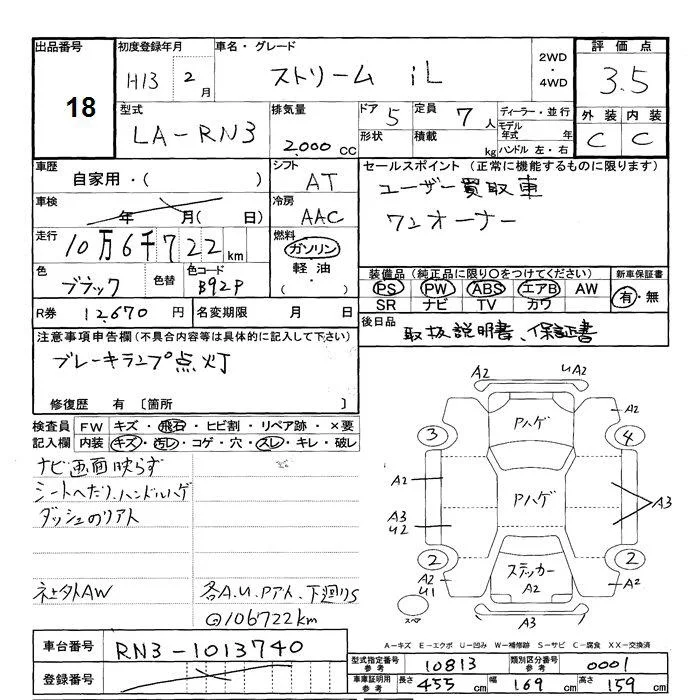 出品番号 18
初度登録年月 H13 2月
車名・グレード ストリーム iL
2WD・4WD
評価点 3.5
外装 C 内装 C
型式 LA-RN3
排気量 2000 cc
ドア 5 定員 7人
形状 積載 kg
ディーラー・並行
モデル年式 年
ハンドル 左・右
車歴 自家用・( )
シフト AT
セールスポイント (正常に機能するものに限ります)
ユーザー買取車
ワンオーナー
車検 年 月( 日)
冷房 AAC
走行 10万6千722km
燃料 ガソリン
軽油・
色 ブラック 色替 色コード B92P
装備品(純正品に限り○をつけてください)
PS PW ABS エアB AW
SR ナビ TV カワ
新車保証書 有・無
R券 12,670円 名変期限 月 日
後日品 取扱説明書、保証書
注意事項申告欄(不具合内容等は具体的に記入して下さい)
ブレーキランプ点灯
修復歴 有〔箇所 〕
検査員記入欄 FW キズ・飛石・ヒビ割・リペア跡・×要
内装 キズ・汚レ・コゲ・穴・スレ・キレ・破レ
ナビ画面映らず
シートへたり、ハンドルハゲ
ダッシュのリアト
社外AW
各A.U.Pアト、下廻りS
@106722km
A2 UA2
A2 Pハゲ A2
3 4
A2 Pハゲ
A3 U2 A3
2 2
A2 U1 ステッカー A2 A2 U
スペア A3
A-キズ E-エクボ U-凹み W-補修跡 S-サビ C-腐食 XX-交換済
車台番号 RN3-1013740
登録番号
型式指定番号 参考 10813 類別区分番号 参考 0001
車庫証明用 参考 長さ 455cm 幅 169cm 高さ 159cm